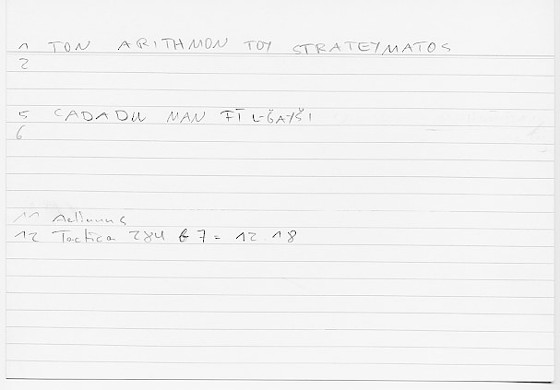 1 TON ARITHMON TOY STRATEYMATOS
2
5 CADADU MAN FĪ L-ǦAYŠI
6
11 Aelianus
12 Tactica 284 6 7 = 12 18